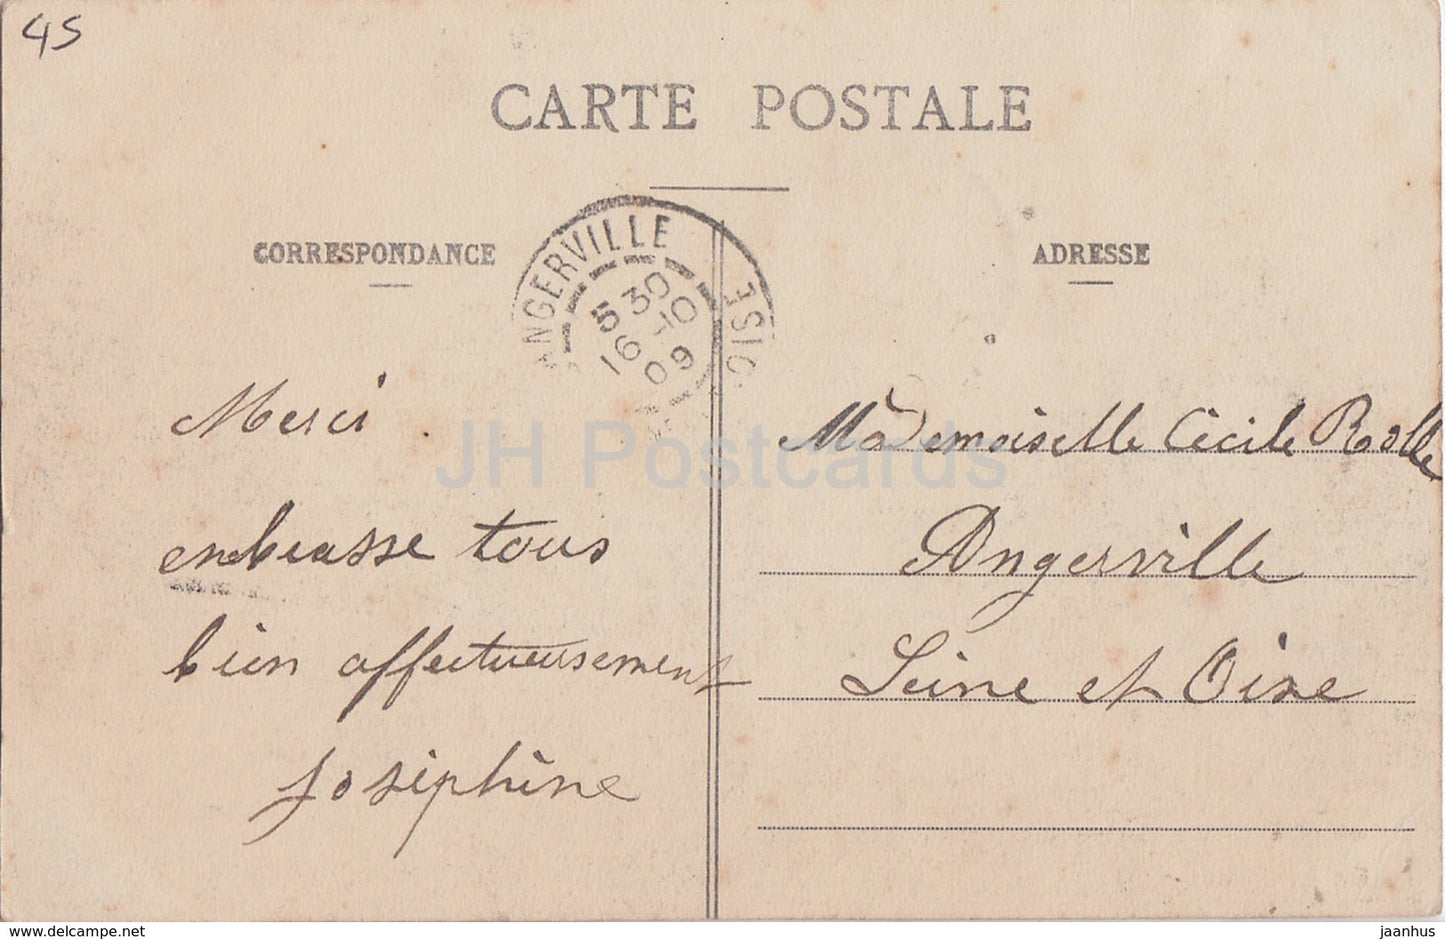 45
CARTE POSTALE
CORRESPONDANCE
ADRESSE
ANGERVILLE
OISE
5 30
16-10
09
Merci .
embrasse tous
bien affectueusement
Joséphine
Mademoiselle Cécile
Angerville
Seine et Oise
JH Postcards
delcampe.net
jaanhus